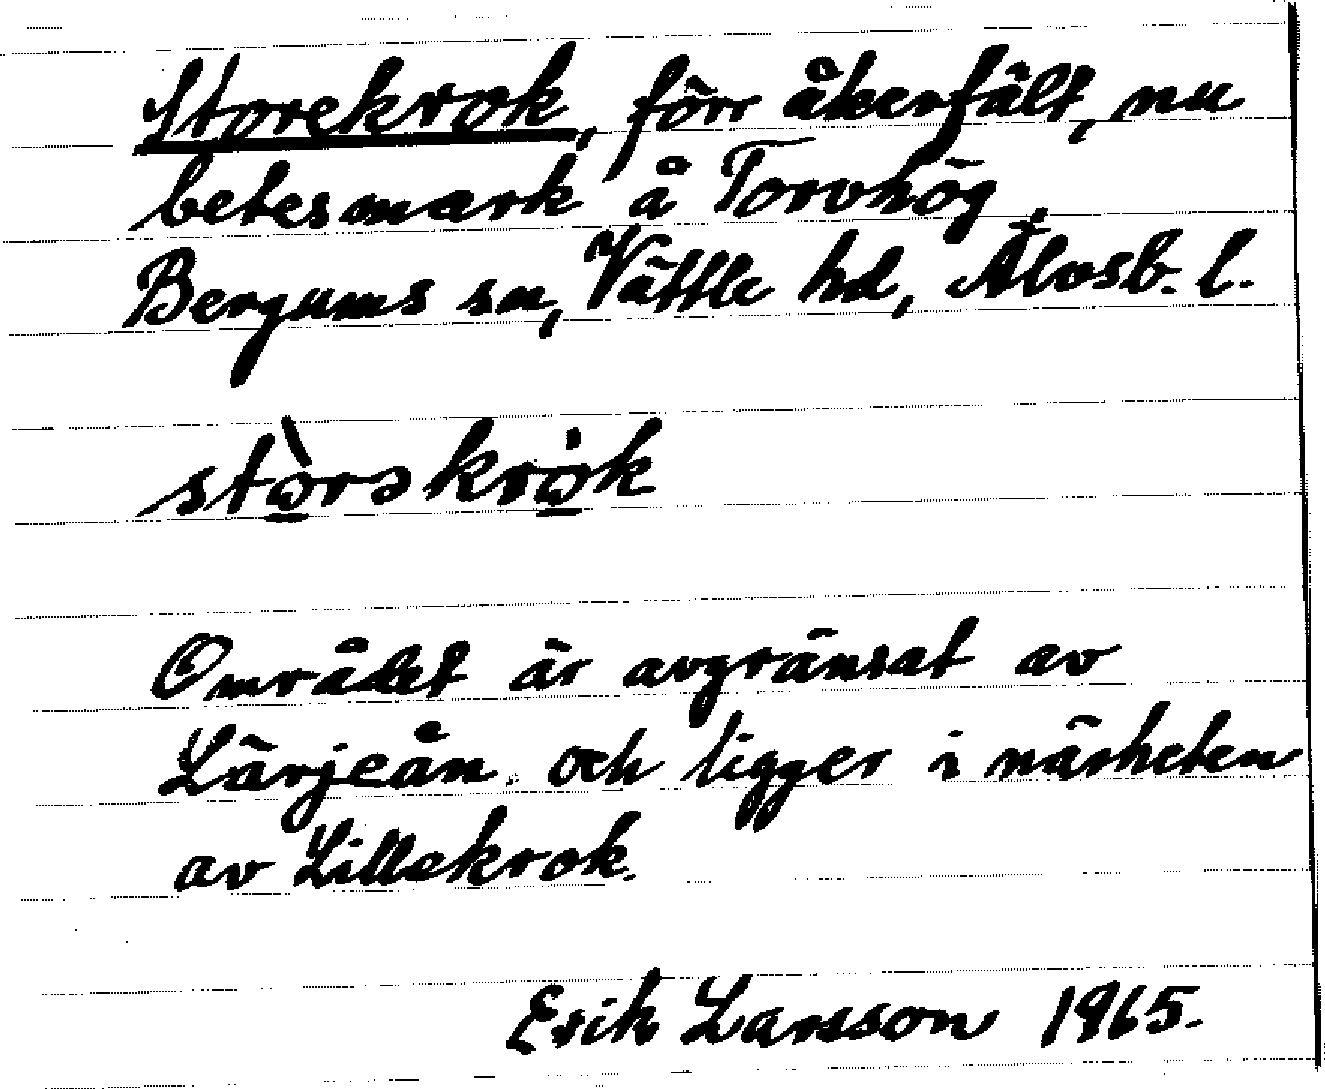 Storekrok, förr åkerfält, nu
betesmark å Torvhög,
Bergums sn, Vättle hd, Älvsb. l.
stò̱rəkrȯ̱k
Området är avgränsat av
Lärjeån och ligger i närheten
av Lillekrok.
Erik Larsson 1965.